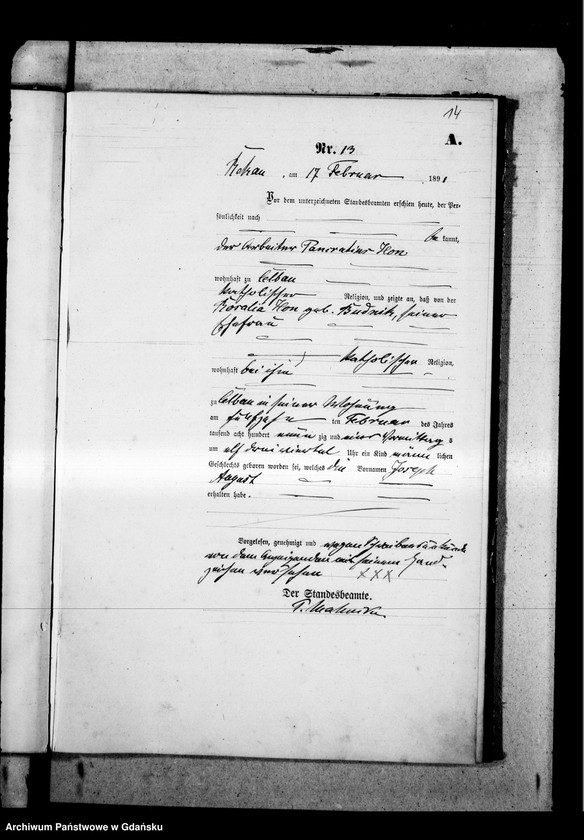 14
A.
Nr. 13
am 17 Februar 1891
Vor dem unterzeichneten Standesbeamten erschien heute, der Per-
sönlichkeit nach
be kannt,
der Arbeiter Hon
wohnhaft zu CeLbau
katholischer Religion, und zeigte an, daß von der
Hon geb. Budnik, seiner
Ehefrau
katholischer Religion,
wohnhaft bei ihm
zu in seiner Wohnung
am fünfzehn ten Februar des Jahres
tausend acht hundert neun zig und einer Vormittag s
um elf dreiviertel Uhr ein Kind männ lichen
Geschlechts geboren worden sei, welches den Vornamen Joseph
August
erhalten habe.
Vorgelesen, genehmigt und wegen Schreibensunkunde
von dem Anzeigenden mit seinem Hand-
zeichen versehen XXX
Der Standesbeamte.
Archiwum Państwowe w Gdańsku